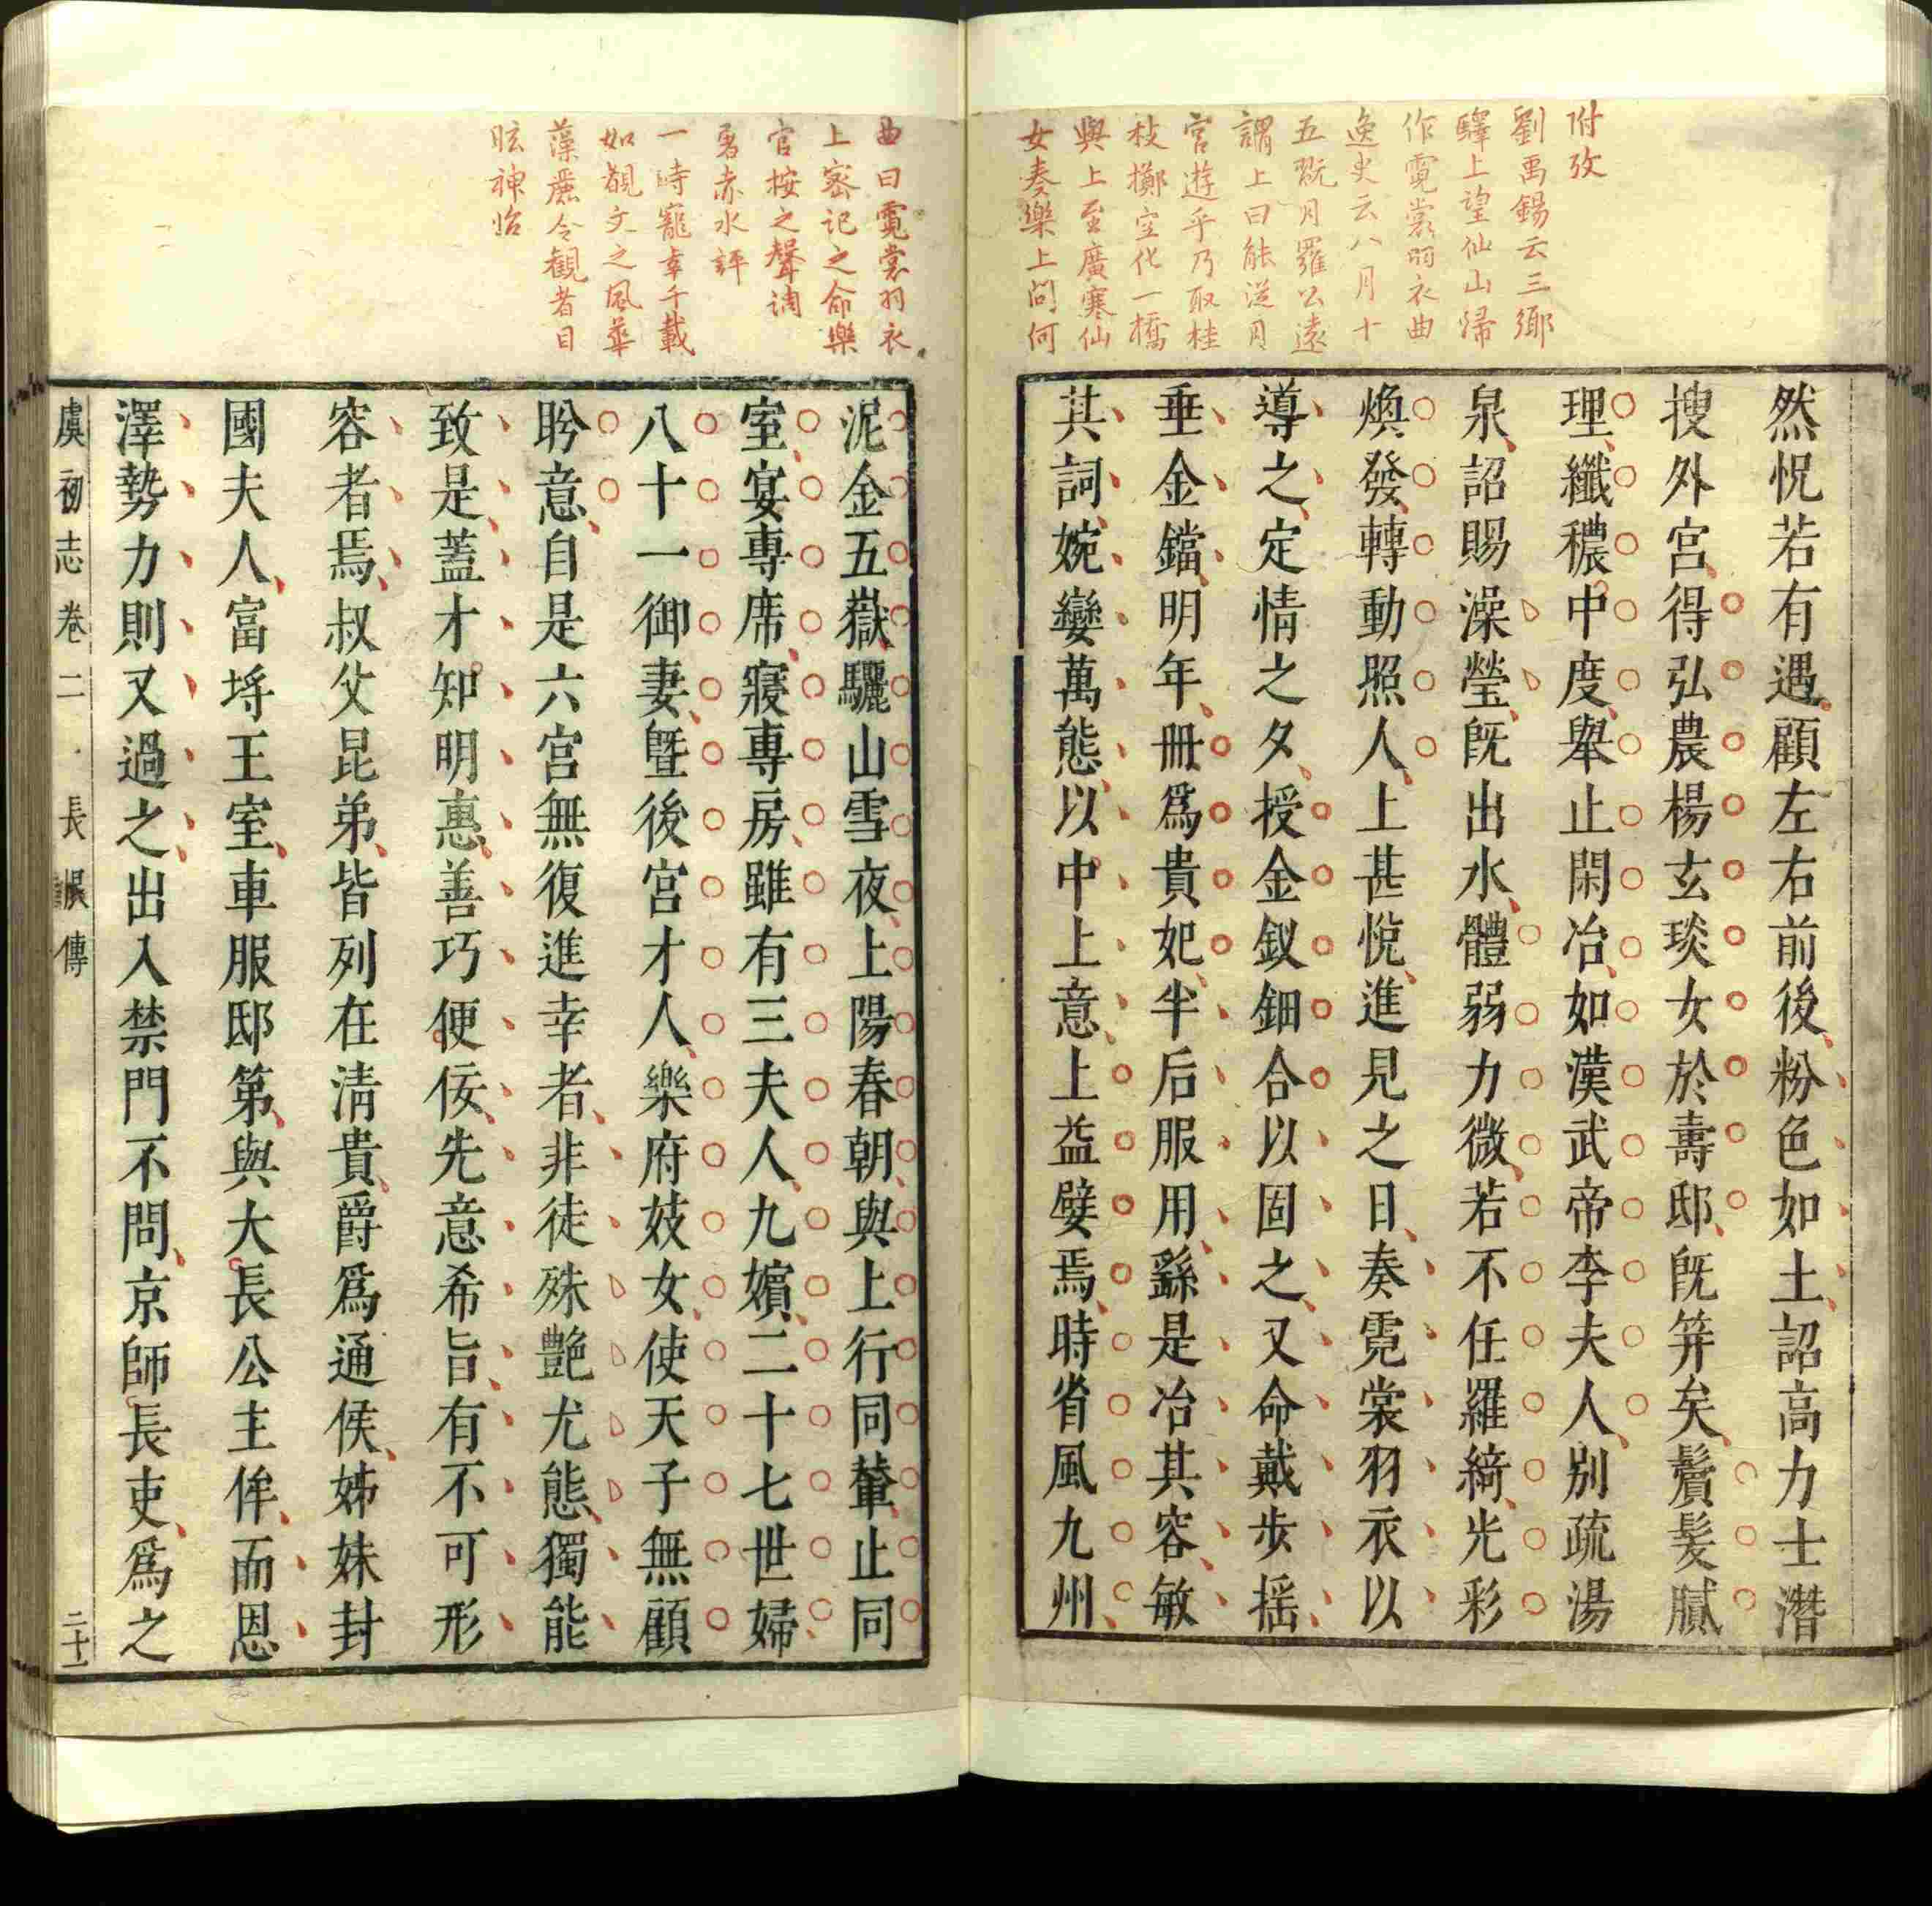 附攷
劉禹錫云三鄉
驛上望仙山歸
作霓裳羽衣曲
逸史云八月十
五翫月羅公遠
謂上曰能從月
宮遊乎乃取桂
枝擲空化一橋
與上至廣寒仙
女奏樂上問何
然怳若有遇顧左右前後粉色如土詔高力士潛
搜外宮得弘農楊玄琰女於壽邸旣笄矣鬢髮膩
理纖穠中度舉止閑冶如漢武帝李夫人別疏湯
泉詔賜澡瑩旣出水體弱力微若不任羅綺光彩
煥發轉動照人上甚悅進見之日奏霓裳羽衣以
導之定情之夕授金釵鈿合以固之又命戴步搖
垂金鐺明年冊爲貴妃半后服用繇是冶其容敏
其詞婉孌萬態以中上意上益嬖焉時省風九州
曲曰霓裳羽衣
上密記之命樂
官按之聲調
屠赤水評
一時寵幸千載
如覩文之風華
藻麗令觀者目
眩神怡
泥金五嶽驪山雪夜上陽春朝與上行同輦止同
室宴專席寢專房雖有三夫人九嬪二十七世婦
八十一御妻曁後宮才人樂府妓女使天子無顧
盼意自是六宮無復進幸者非徒殊艷尤態獨能
致是蓋才知明惠善巧便佞先意希旨有不可形
容者焉叔父昆弟皆列在清貴爵爲通侯姊妹封
國夫人富埒王室車服邸第與大長公主侔而恩
澤勢力則又過之出入禁門不問京師長吏爲之
虞初志卷二 長恨傳 二十一